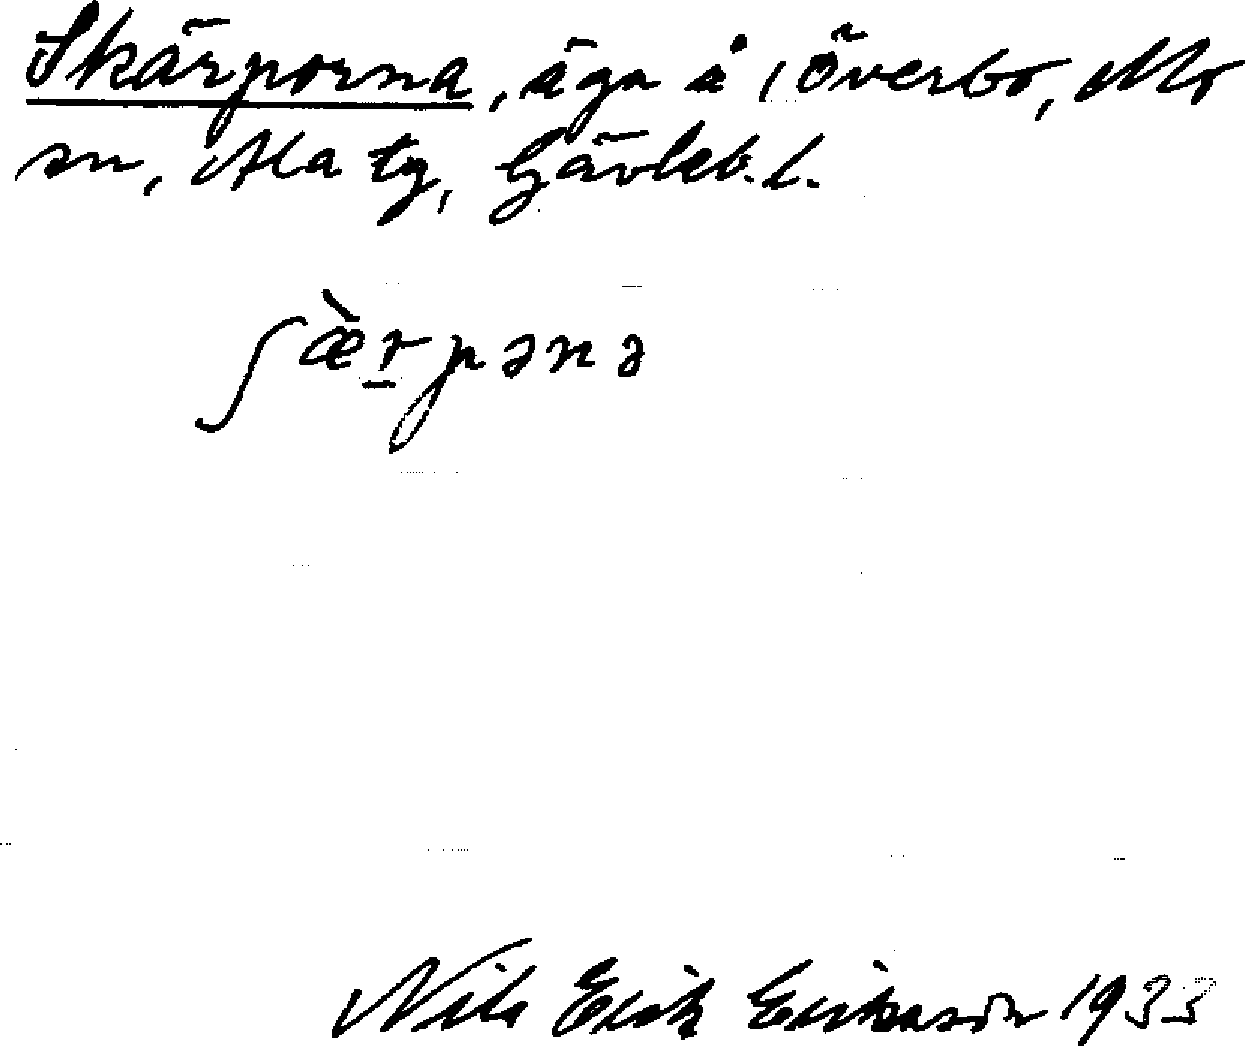 Skärporna, äga å i Överbo, Mo
sn, Ala tg, Gävleb. l.
ʃæ̀r̠pənə
Nils Erik Eriksson 1933